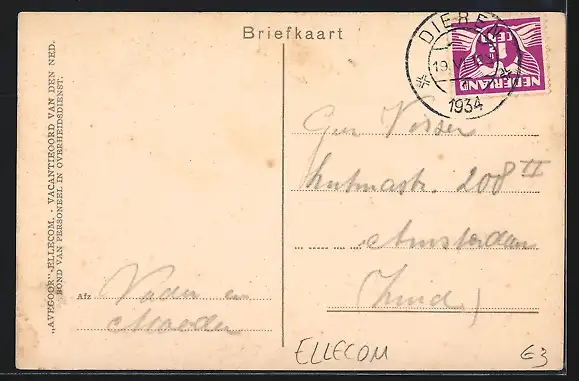 Briefkaart
DIEREN
1934
NEDERLAND
CENT
"AVEGOOR"-ELLECOM. - VACANTIEOORD VAN DEN NED.
BOND VAN PERSONEEL IN OVERHEIDSDIENST.
Visser
208 II
Amsterdam
(Zuid)
Afz Vader en
Moeder
ELLECOM